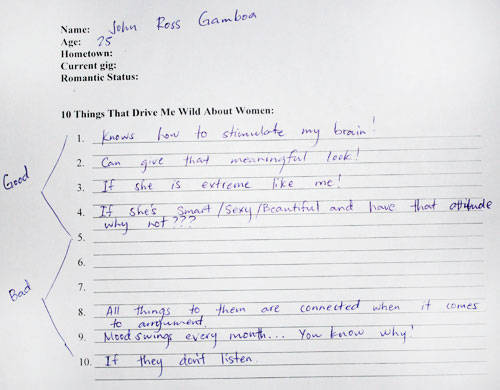 Name: John Ross Gamboa
Age: 25
Hometown:
Current gig:
Romantic Status:
10 Things That Drive Me Wild About Women:
Good
1. Knows how to stimulate my brain!
2. Can give that meaningful look!
3. If she is extreme like me!
4. If she's smart/Sexy/Beautiful and have that attitude
why not???
5.
6.
7.
Bad
8. All things to them are connected when it comes
to arrgument.
9. Mood swings every month... You know why!
10. If they don't listen.